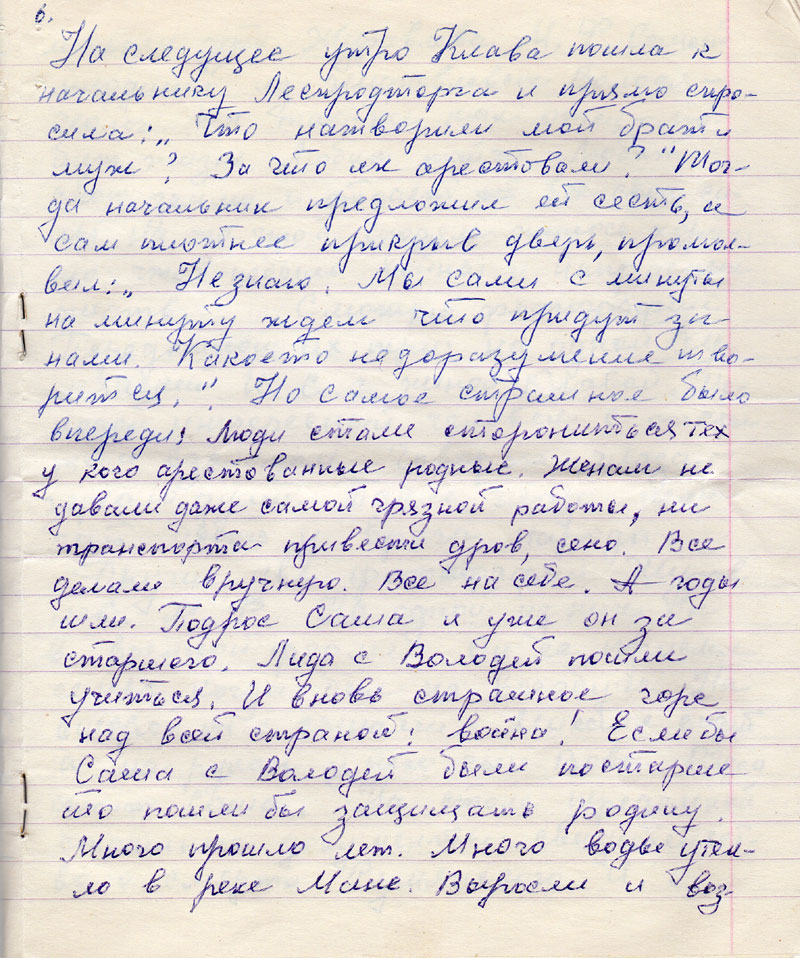 6.
На следущее утро Клава пошла к
начальнику Леспродторга и прямо спро-
сила: „Что натворили мой брат и
муж? За что их арестовали?" Тог-
да начальник предложил ей сесть, и
сам плотнее прикрыв дверь, промол-
вил: „Не знаю. Мы сами с минуты
на минуту ждем что придут за
нами. Какоето недоразумение тво-
рится.". Но самое страшное было
впереди: Люди стали сторониться тех
у кого арестованные родные. Женам не
давали даже самой грязной работы, ни
транспорта привести дров, сено. Все
делали вручную. Все на себе. А годы
шли. Подрос Саша и уже он за
старшего. Лида с Володей пошли
учиться. И вновь страшное горе
над всей страной: война! Если бы
Саша с Володей были постарше
то пошли бы защищать родину.
Много прошло лет. Много воды утек-
ло в реке Мане. Выросли и воз-